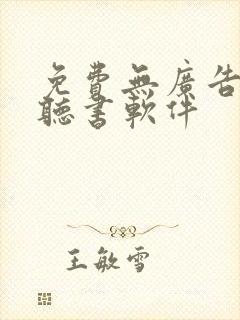 免費無廣告
聽書軟件
王敏雪